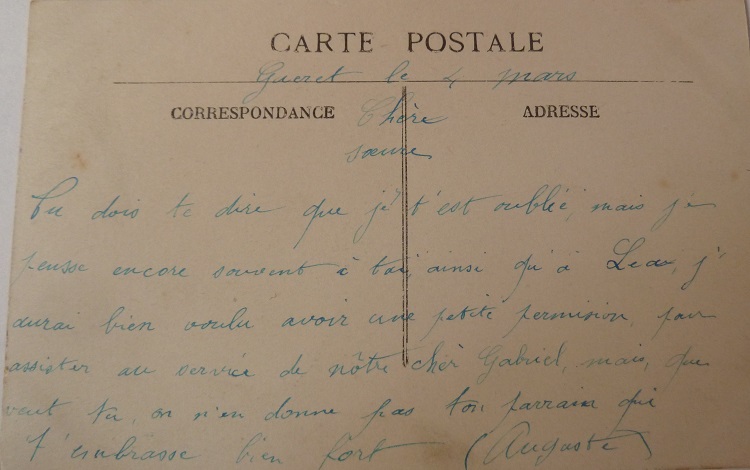 CARTE POSTALE
Gueret le 4 mars
CORRESPONDANCE
ADRESSE
Chère
sœure
Tu dois te dire que je t'est oublié, mais je
pensse encore souvent à toi, ainsi qu'à Lea, j'
aurai bien voulu avoir une petite permision, pour
assister au service de nôtre chèr Gabriel, mais, que
veut tu, on n'en donne pas ton parrain qui
t'embrasse bien fort (Auguste)